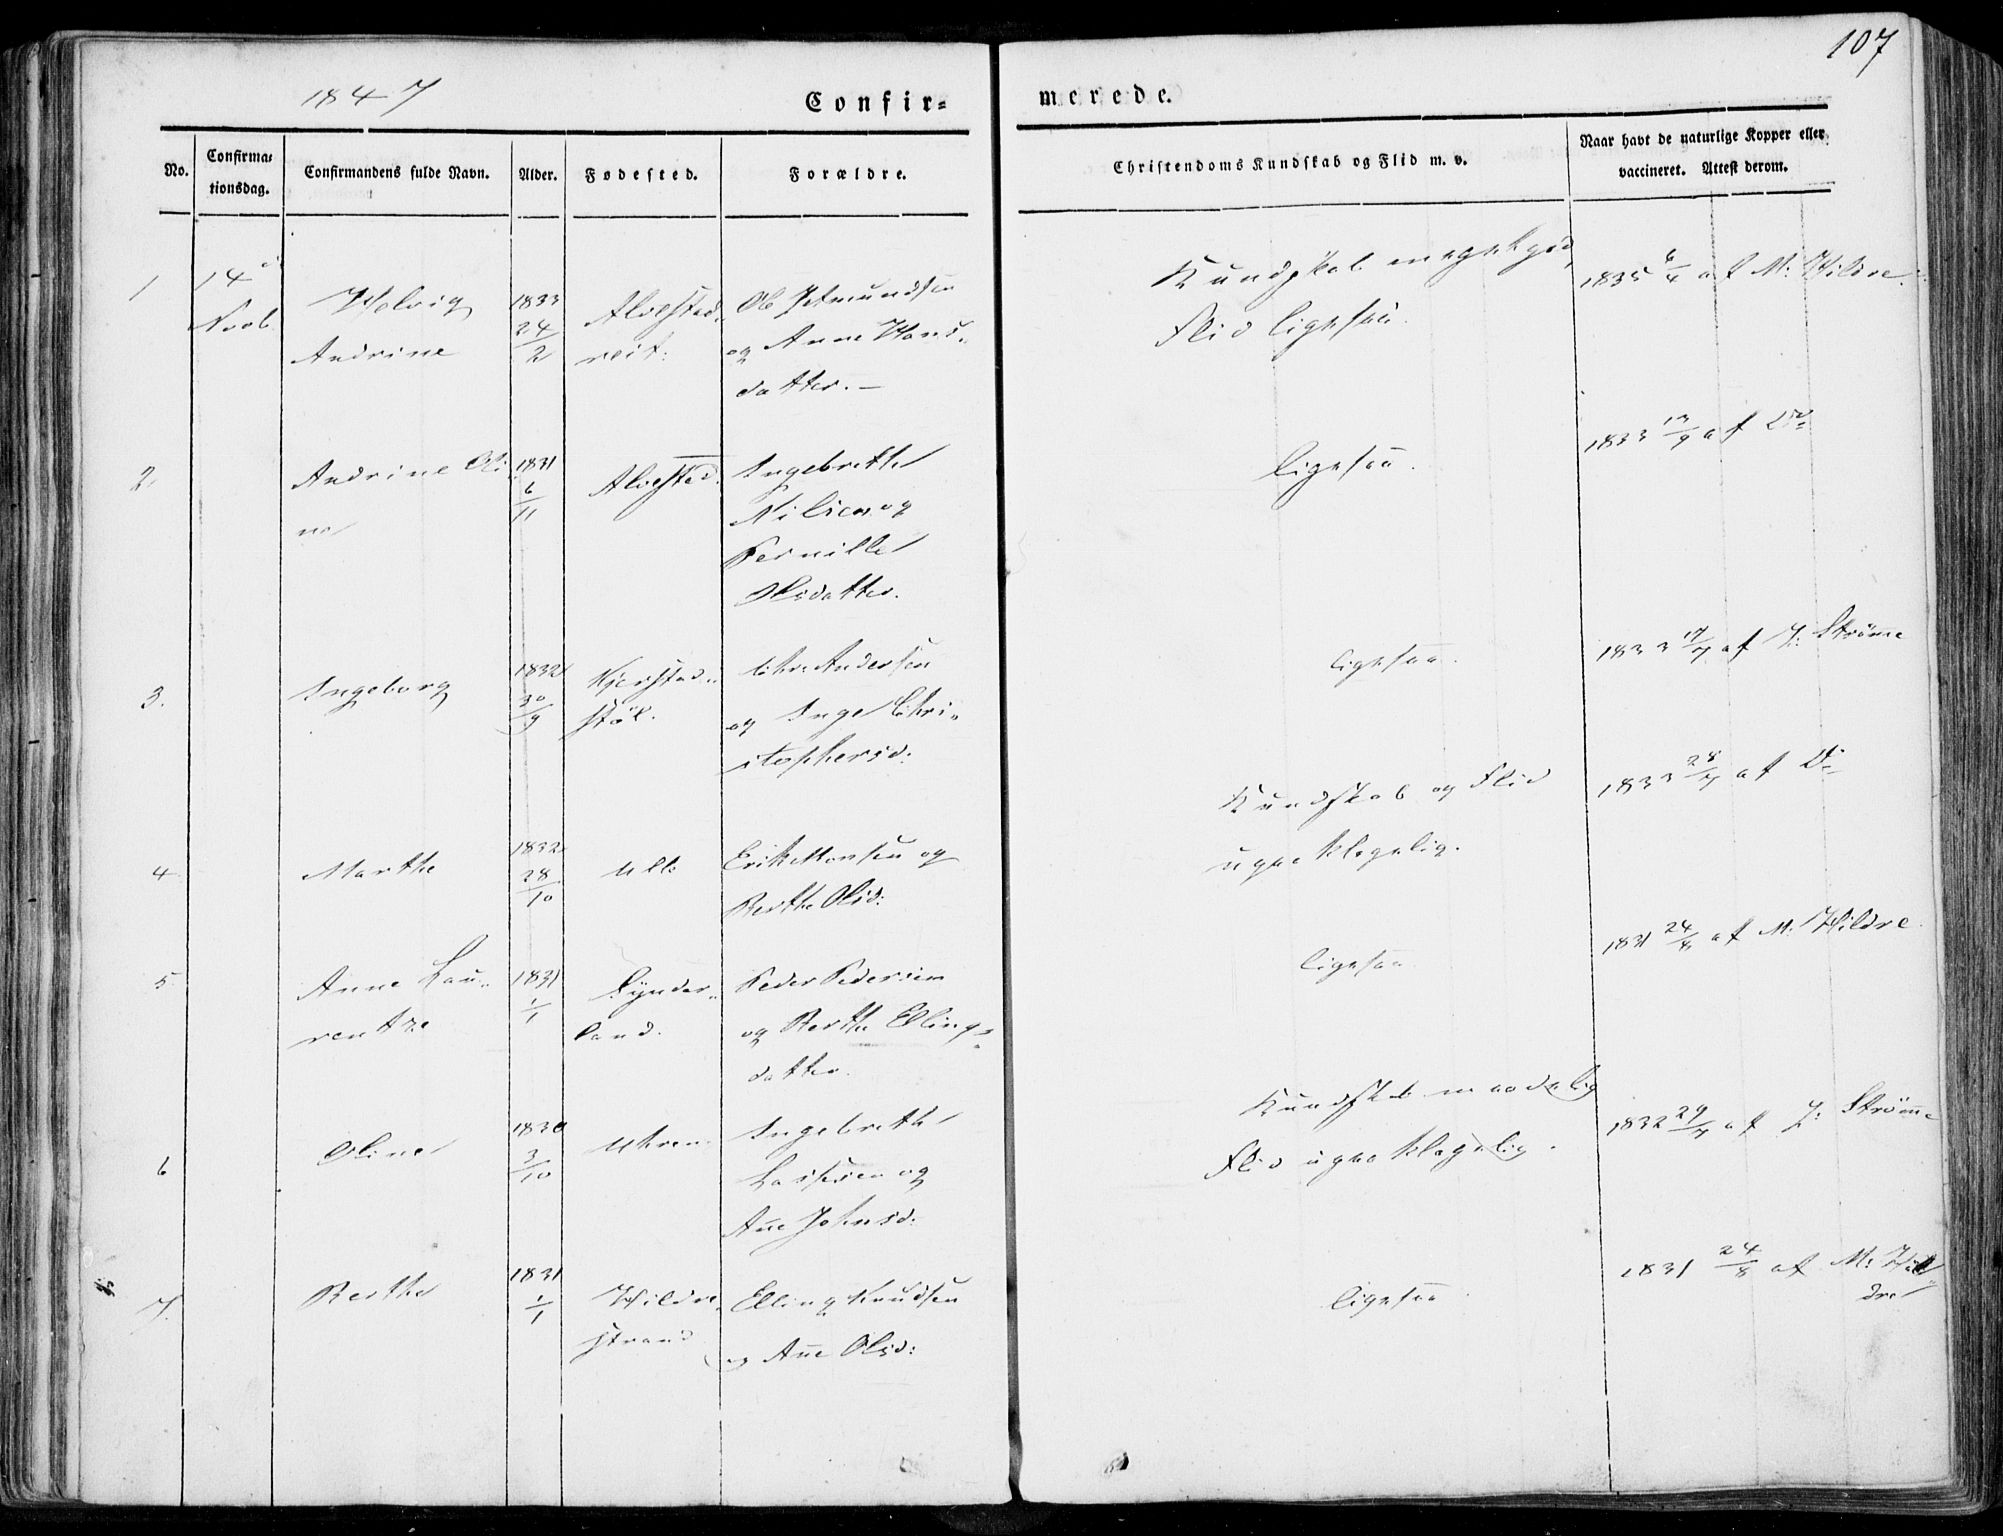 107
1847
Confir=
merede.
No.
Confirma=
tionsdag.
Confirmandens fulde Navn.
Alder.
Fødested.
Forældre.
Christendoms Kundskab og Flid m. v.
Naar havt de naturlige Kopper eller
vaccineret. Attest derom.
1
14
Novb.
Andrine
1833
24/2
Alvestad,,
reit:
Ole
og Anne Hans,,
datter. —
Kundskab meget god,
Flid ligesaa.
1835 6/4 af M: Hildre.
2.
Andrine Oli
ne
1831
6/11
Alvestad.
Ingebreth
og
Pernille
Olsdatter.
ligesaa.
1833 13/9 af Do
3.
Ingeborg
1832
30/9
Kjerstad,,
støl.
Chr: Andersen
og Inge Chri,,
stophersd:
ligesaa.
1833 17/7 af J: Strømme
4
Marthe
1832
28/10
Ulla
Erik Monsen og
Berthe Olsd:
Kundskab og Flid
upaaklagelig.
1833 28/7 af Do
5.
Anne Lau,,
rentze
1831
1/1
Synder,,
land.
Peder Pedersen
og Berthe Ellings,,
datter.
ligesaa
1831 24/8 af M: Hildre
6
Oline
1830
3/10
Uhren.
Ingebreth
Lassesen og
Añe Johnsd:
Kundskab maadelig
Flid upaaklagelig.
1832 29/7 af J: Strømme
7.
Berthe
1831
1/1
Hildre,,
strand
Elling Knudsen
og Añe Olsd:
ligesaa.
1831 24/8 af M: Hil,,
dre